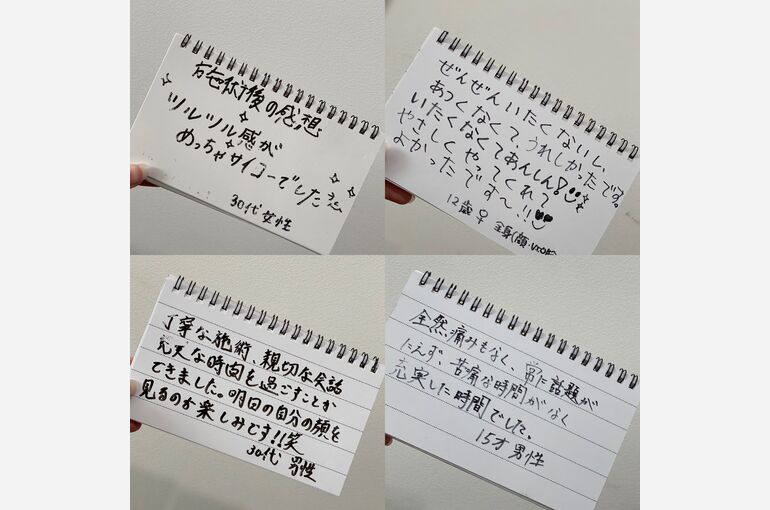 施術後の感想
ツルツル感が
めっちゃサイコーでした
30代女性
ぜんぜんいたくないし、
あつくなくて、うれしかったです。
いたくなくてあんしん!
やさしくやってくれて
よかったです〜!!
12歳♀ 全身(顔・VIO
丁寧な施術、親切な会話
充実な時間を過ごすことが
できました。明日の自分の顔を
見るのが楽しみです!!笑
30代 男性
全然痛みもなく、常に話題が
たえず、苦痛な時間がなく
充実した時間でした。
15才 男性